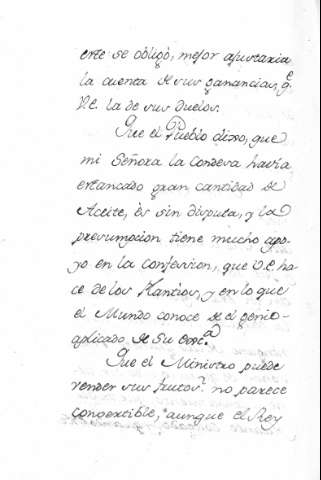 este se obligó, mejor ajustaria
la cuenta de sus ganancias, q.e
V.E. la de sus duelos.
Que el Pueblo dixo, que
mi Señora la Condesa havia
estancado gran cantidad de
Aceite, es sin disputa, y la
presumpcion tiene mucho apo-
yo en la confession, que V.E. ha-
ce de los Plantios, y en lo que
el Mundo conoce de el genio
aplicado de Su Exc.a
Que el Ministro puede
vender sus frutos no parece
congextible, aunque el Rey